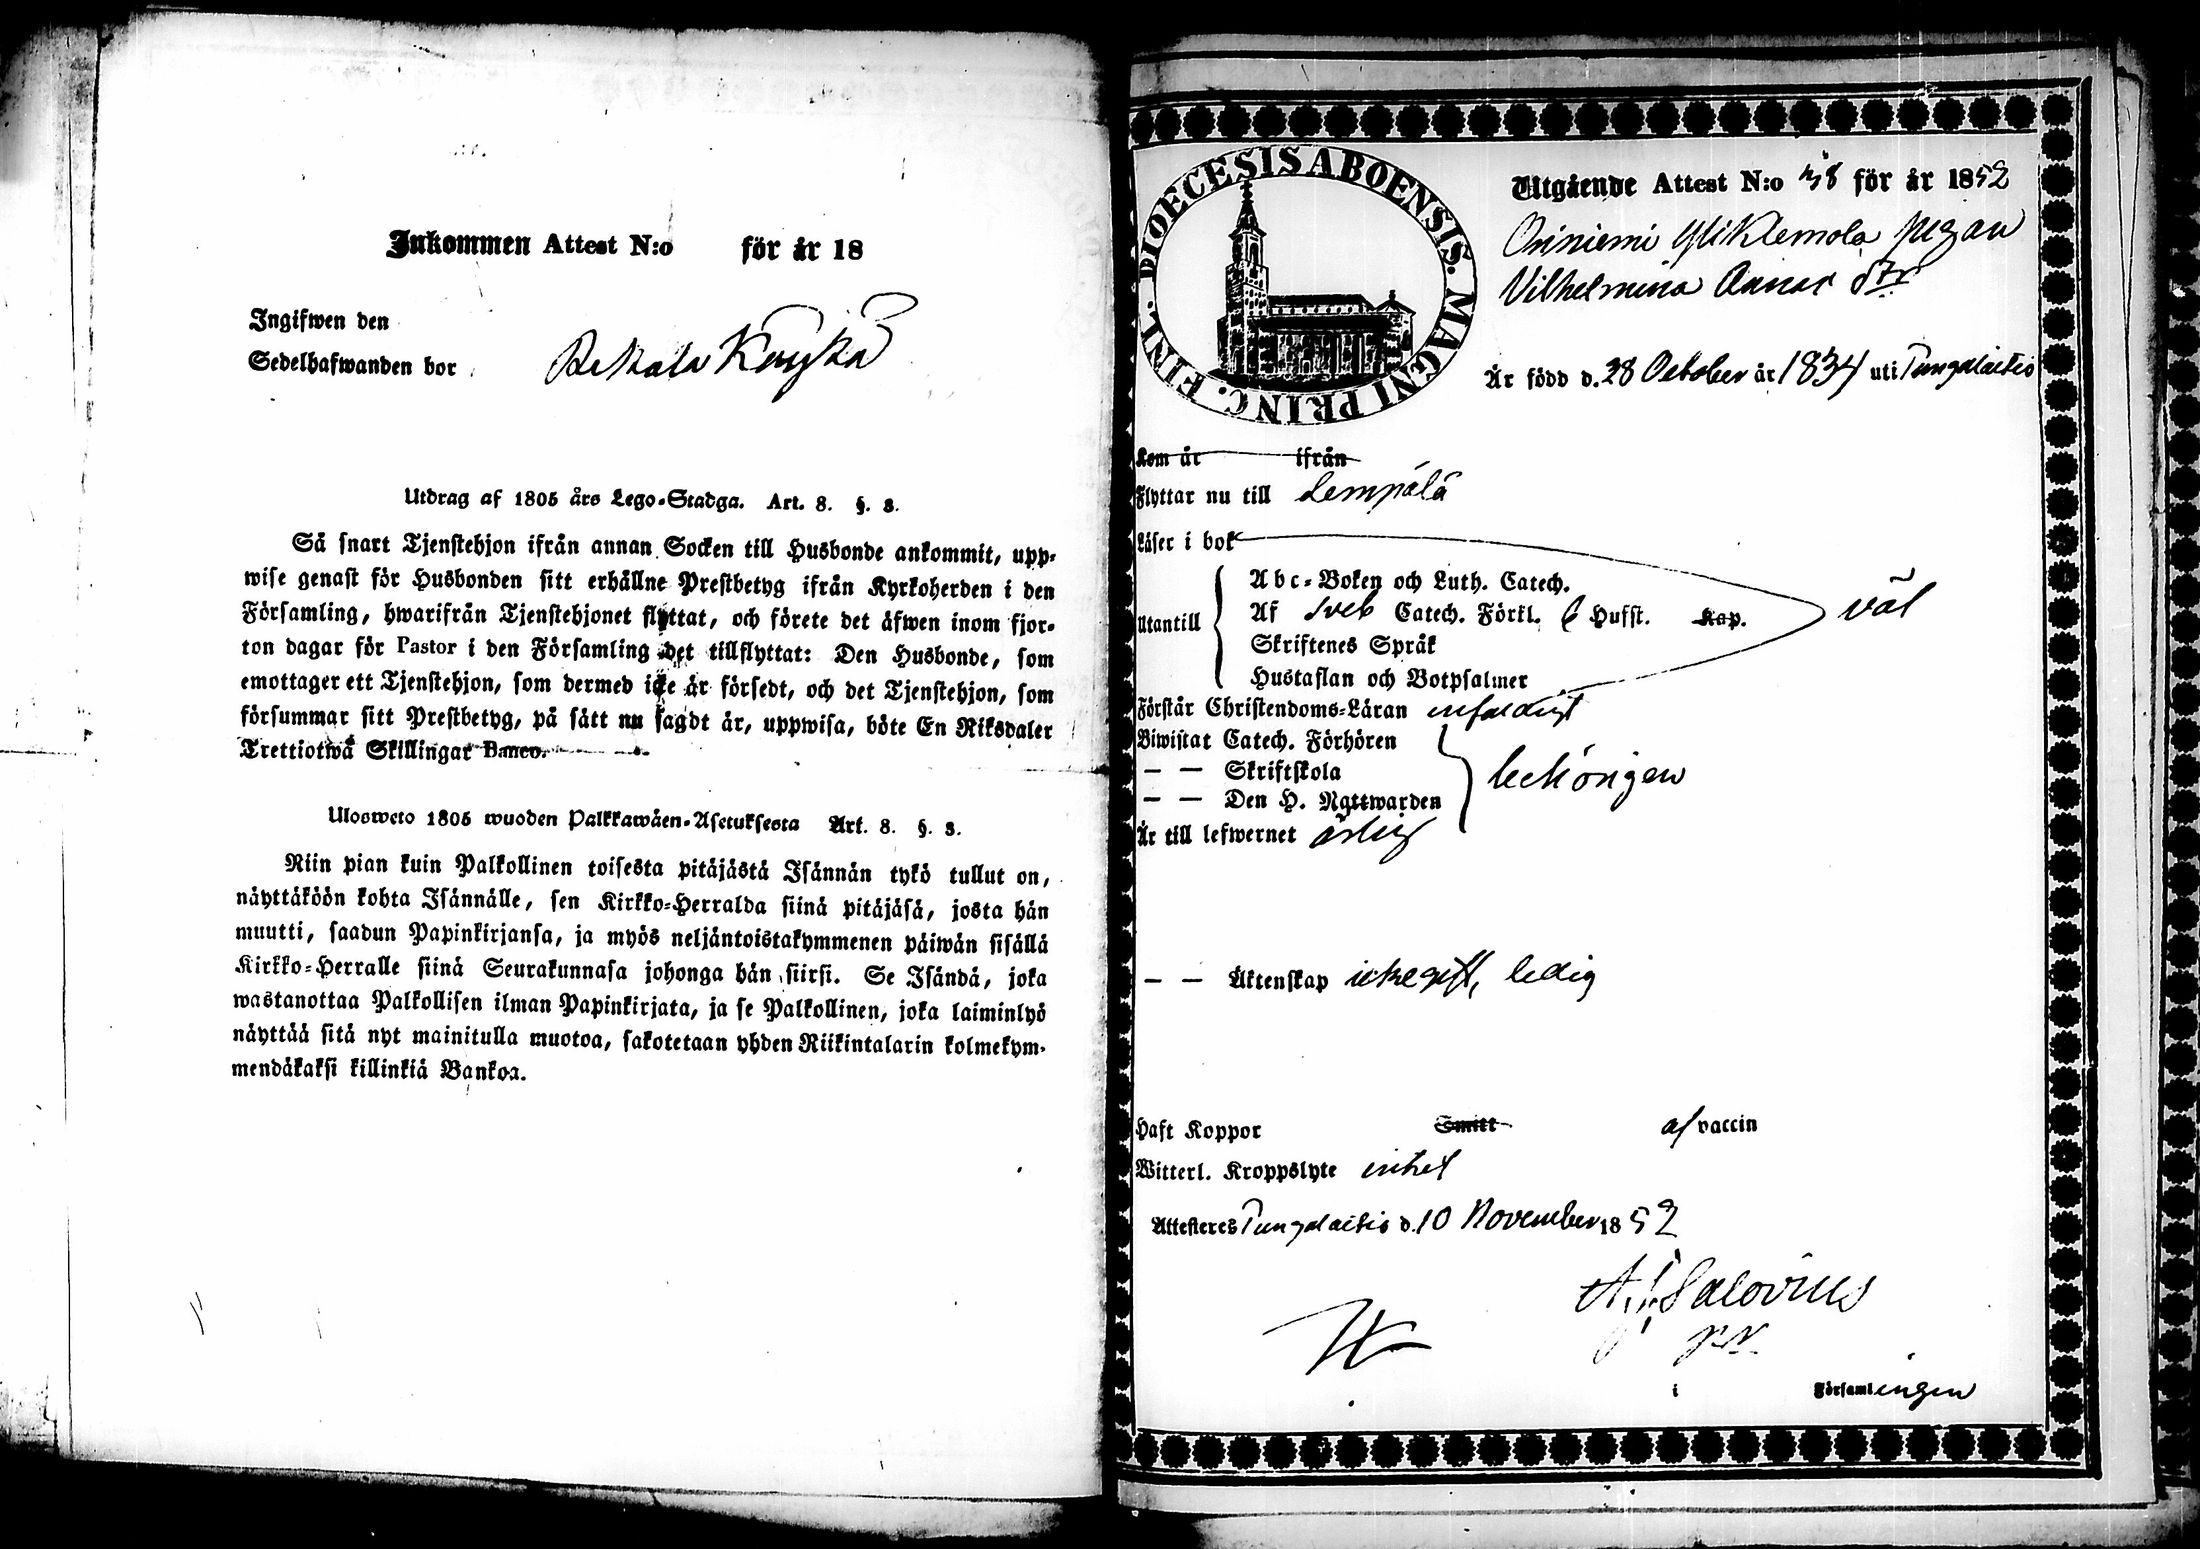 Inkommen Attest N:o för år 18
Ingifwen den
Sedelhafwanden bor
Utdrag af 1805 års Lego-Stadga. Art. 8. §. 3.
Så snart Tjenstehjon ifrån annan Socken till Husbonde ankommit, upp-
wise genast för Husbonden sitt erhållne Prestbetyg ifrån Kyrkoherden i den
Församling, hwarifrån Tjenstehjonet flyttat, och förete det äfwen inom fjor-
ton dagar för Pastor i den Församling det tillflyttat: Den Husbonde, som
emottager ett Tjenstehjon, som dermed icke är försedt, och det Tjenstehjon, som
försummar sitt Prestbetyg, på sätt nu sagdt är, uppwisa, böte En Riksdaler
Trettiotwå Skillingar Banco.
Ulosweto 1805 wuoden Palkkawäen-Asetuksesta Art. 8. §. 3.
Niin pian kuin Palkollinen toisesta pitäjästä Isännän tykö tullut on,
näyttäköön kohta Isännälle, sen Kirkko-Herralda siinä pitäjäsä, josta hän
muutti, saadun Papinkirjansa, ja myös neljäntoistakymmenen päiwän sisällä
Kirkko-Herralle siinä Seurakunnasa johonga hän siirsi. Se Isändä, joka
wastanottaa Palkollisen ilman Papinkirjata, ja se Palkollinen, joka laiminlyö
näyttää sitä nyt mainitulla muotoa, sakotetaan yhden Riikintalarin kolmekym-
mendäkaksi killinkiä Bankoa.
DIOECESIS ABOENSIS. MAGNI PRINC. FINL.
Utgående Attest N:o 38 för år 1852
Yliklemola pigan
Vilhelmina dtr
Är född d. 28 October år 1834 uti Pungalaitio
Kom år ifrån
Flyttar nu till Lempälä
Läser i bok
Utantill
Abc-Boken och Luth. Catech.
Af Sveb Catech. Förkl. 6 Hufst. Kap.
väl
Skriftenes Språk
Hustaflan och Botpsalmer
Förstår Christendoms-Läran enfaldigt
Biwistat Catech. Förhören
— — Skriftskola
behörigen
— — Den H. Nattwarden
Är till lefwernet ärlig
— — Äktenskap icke gift, ledig
Haft Koppor Smitt af vaccin
Witterl. Kroppslyte intet
Attesteres Pungalaitio d. 10 November 1852
A. J. Salovius
i Församlingen